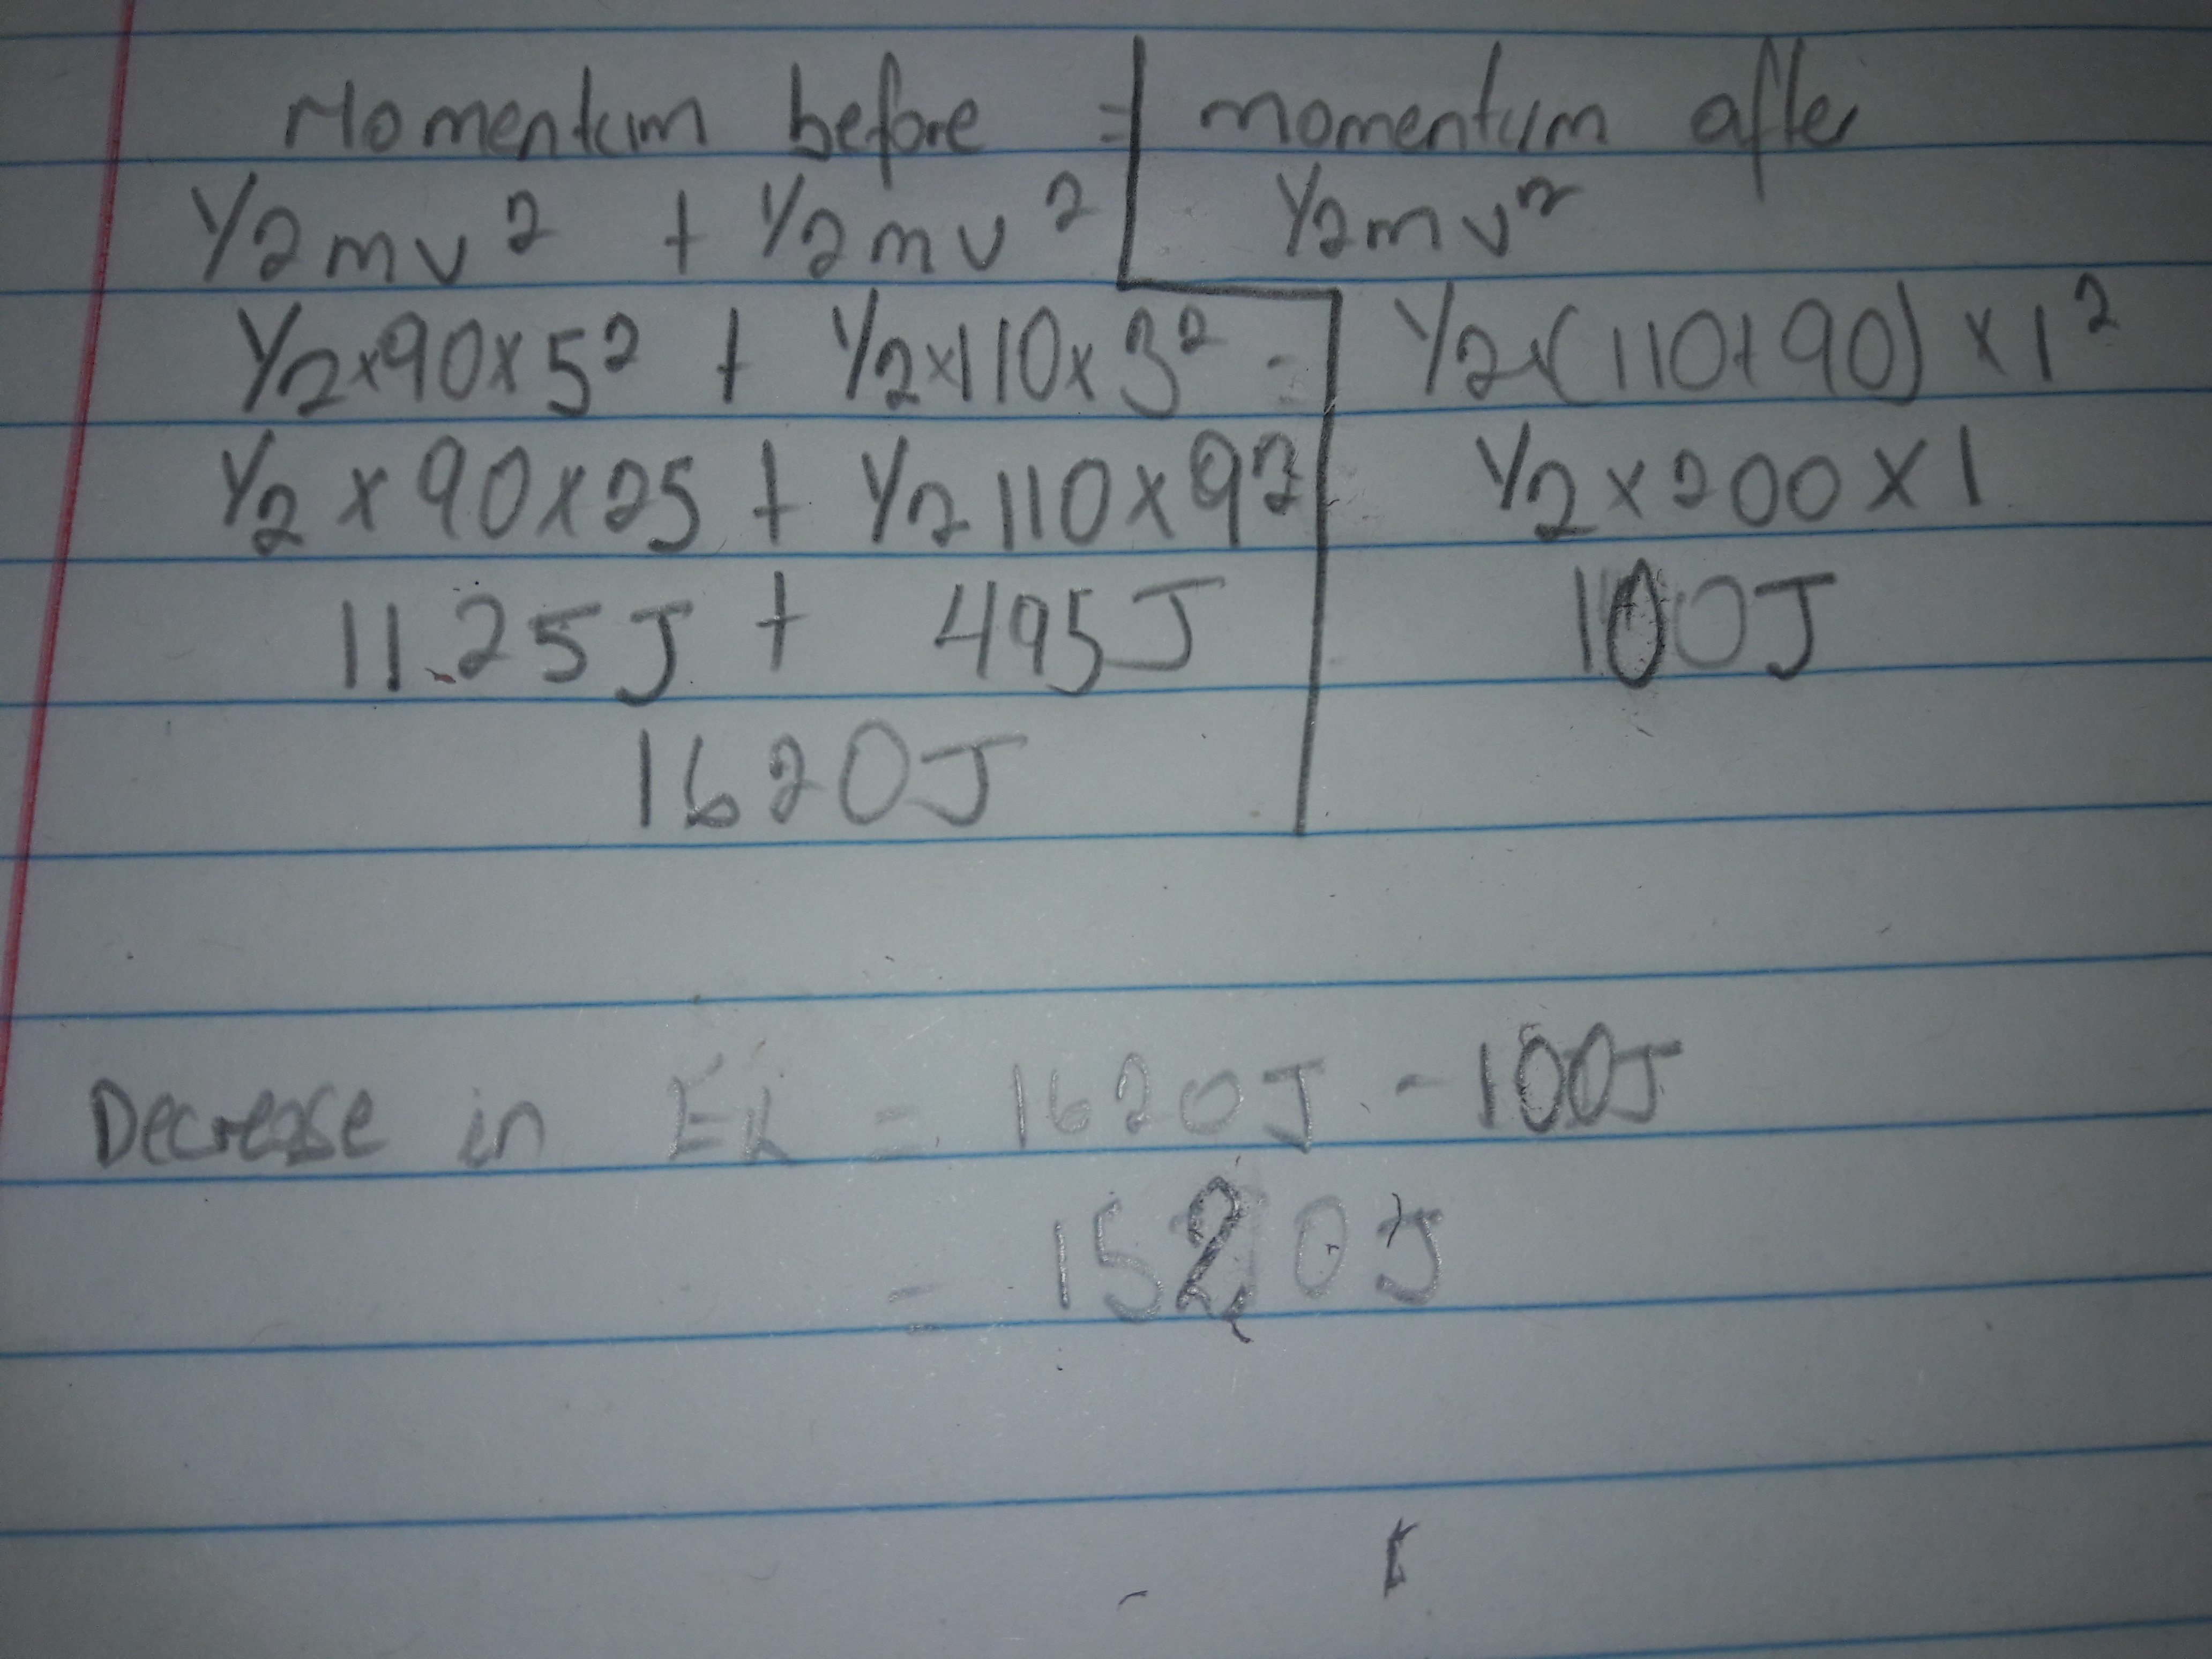 Momentum before = momentum after
1/2mv² + 1/2mv² 1/2mv²
1/2×90×5² + 1/2×110×3² = 1/2×(110+90)×1²
1/2×90×25 + 1/2 110×9² 1/2×200×1
1125J + 495J 100J
1620J
Decrease in Ek = 1620J - 100J
= 1520J